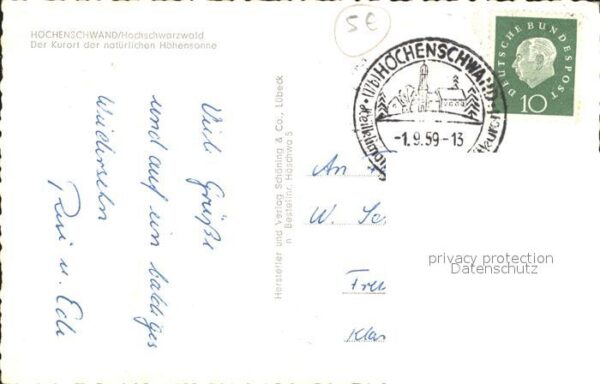 HÖCHENSCHWAND/Hochschwarzwald
Der Kurort der natürlichen Höhensonne
5€
Viele Grüße
und auf ein baldiges
Wiedersehn
u. Edi
Hersteller und Verlag Schöning & Co., Lübeck
n Bestellnr. Höschwa 5
(17b) HÖCHENSCHWAND
-1.9.59-13
DEUTSCHE BUNDESPOST
10
An
W.
privacy protection
Datenschutz